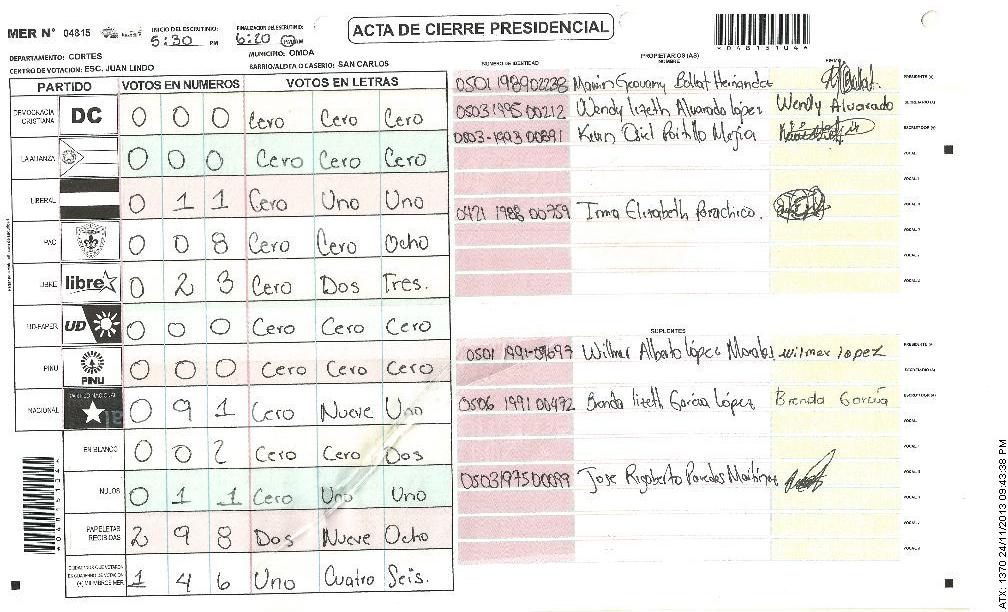 ACTA DE CIERRE PRESIDENCIAL
MER N° 04815
INICIO DEL ESCRUTINIO: 5:30 PM
FINALIZACION DEL ESCRUTINIO: 6:20 PM
DEPARTAMENTO: CORTES
MUNICIPIO: OMOA
CENTRO DE VOTACION: ESC. JUAN LINDO
BARRIO/ALDEA O CASERIO: SAN CARLOS
*04815104*
PARTIDO VOTOS EN NUMEROS VOTOS EN LETRAS
DEMOCRACIA CRISTIANA DC 0 0 0 Cero Cero Cero
LA ALIANZA 0 0 0 Cero Cero Cero
LIBERAL 0 1 1 Cero Uno Uno
PAC 0 0 8 Cero Cero Ocho
LIBRE libre 0 2 3 Cero Dos Tres.
UD-FAPER UD 0 0 0 Cero Cero Cero
PINU PINU 0 0 0 Cero Cero Cero
NACIONAL 0 9 1 Cero Nueve Uno
EN BLANCO 0 0 2 Cero Cero Dos
NULOS 0 1 1 Cero Uno Uno
PAPELETAS RECIBIDAS 2 9 8 Dos Nueve Ocho
1 4 6 Uno Cuatro Seis.
PROPIETARIOS (AS)
NUMERO DE IDENTIDAD NOMBRE FIRMA
0501 198902238 PRESIDENTE (A)
0503 1995 00212 Wendy lizeth Alvarado lópez Wendy Alvarado SECRETARIO (A)
0503-1993 00891 ESCRUTADOR (A)
VOCAL
0421 1988 00759 Irma Elizabeth
SUPLENTES
Wilmer Alberto lópez Morales wilmer lopez PRESIDENTE (A)
SECRETARIO (A)
0506 1991 00472 Brenda lizeth García López Brenda García ESCRUTADOR (A)
VOCAL
Jose Rigoberto Paredes Martinez
ATX: 1370 24/11/2013 09:43:38 PM